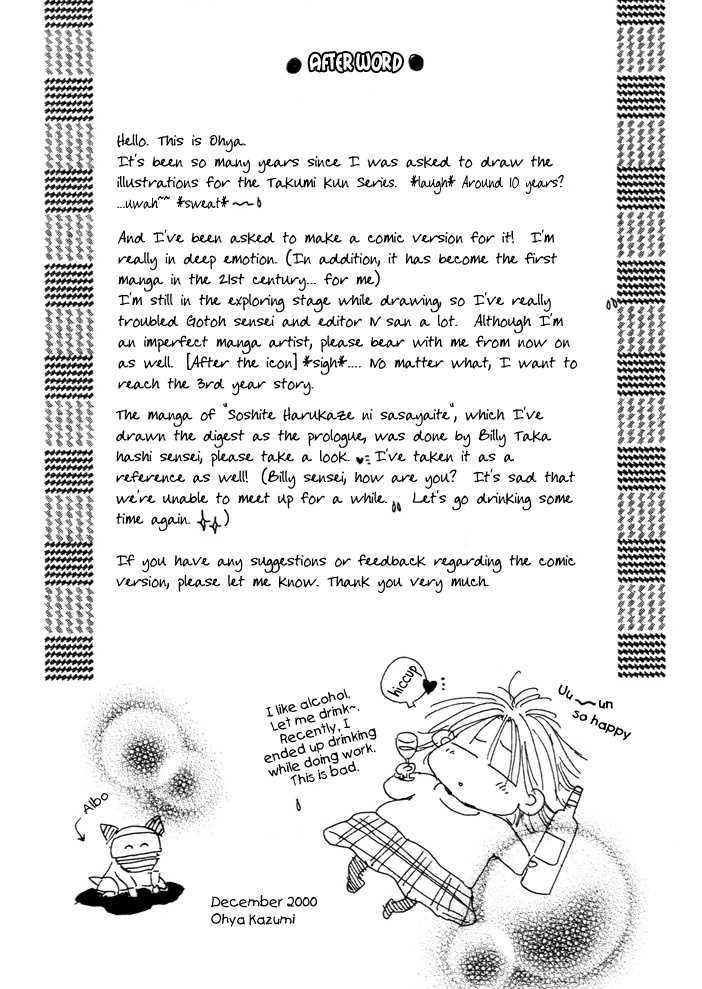 AFTER WORD
Hello. This is Ohya.
It's been so many years since I was asked to draw the
illustrations for the Takumi Kun Series. *laugh* Around 10 years?
...uwah~~ *sweat* ~~
And I've been asked to make a comic version for it! I'm
really in deep emotion. (In addition, it has become the first
manga in the 21st century... for me)
I'm still in the exploring stage while drawing, so I've really
troubled Gotoh sensei and editor N san a lot. Although I'm
an imperfect manga artist, please bear with me from now on
as well. [After the icon] *sigh*.... No matter what, I want to
reach the 3rd year story.
The manga of "Soshite Harukaze ni sasayaite", which I've
drawn the digest as the prologue, was done by Billy Taka
hashi sensei, please take a look. ♥ I've taken it as a
reference as well! (Billy sensei, how are you? It's sad that
we're unable to meet up for a while. Let's go drinking some
time again. )
If you have any suggestions or feedback regarding the comic
version, please let me know. Thank you very much.
hiccup
♥
Uu~un
so happy
I like alcohol.
Let me drink~.
Recently, I
ended up drinking
while doing work.
This is bad.
Albo
December 2000
Ohya Kazumi